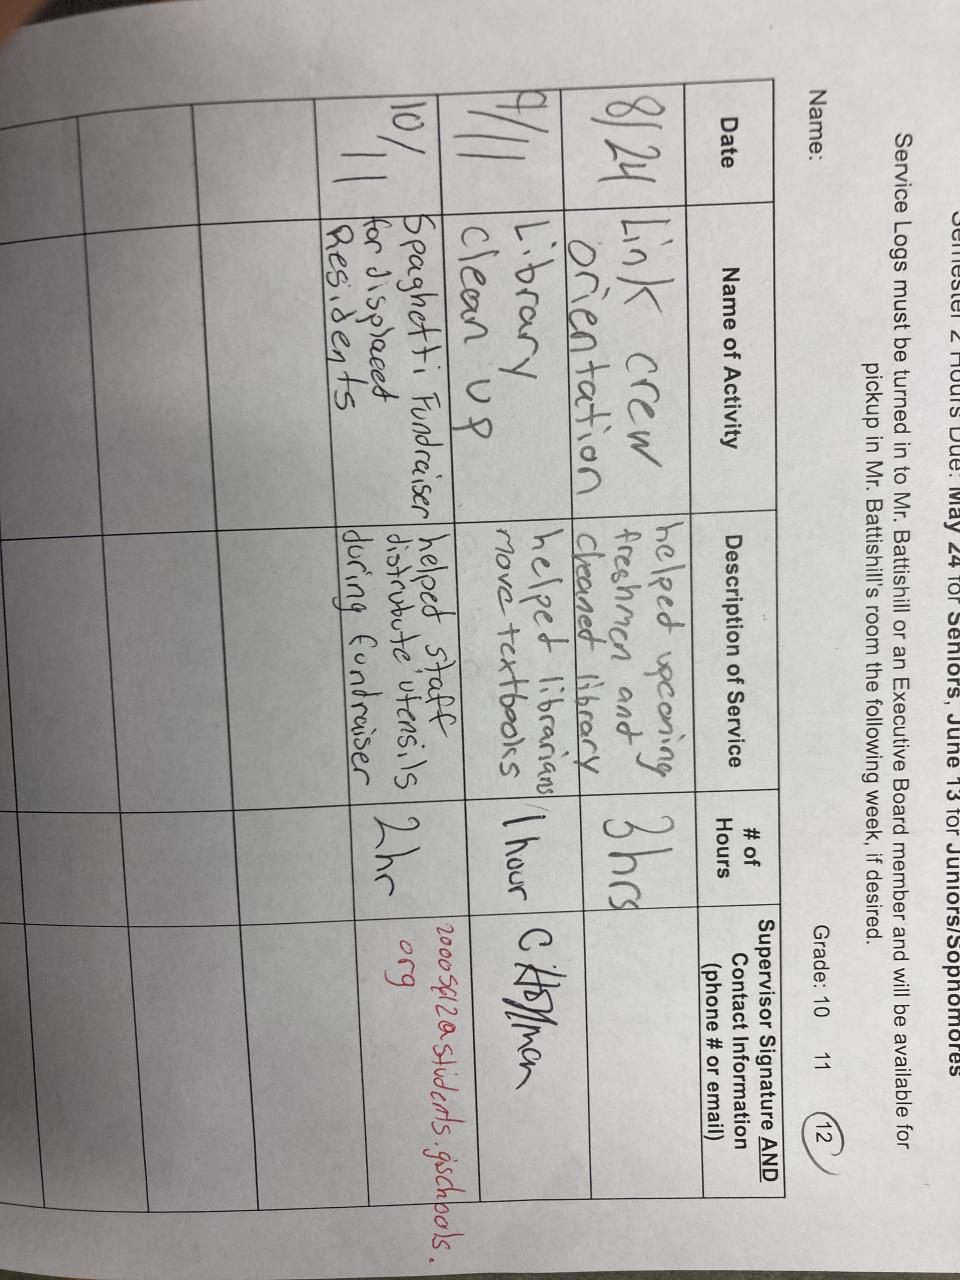 Semester 2 Hours Due: May 24 for Seniors, June 13 for Juniors/Sophomores
Service Logs must be turned in to Mr. Battishill or an Executive Board member and will be available for
pickup in Mr. Battishill's room the following week, if desired.
Name:
Grade: 10 11 12
Date
Name of Activity
Description of Service
# of
Hours
Supervisor Signature AND
Contact Information
(phone # or email)
8/24
Link crew
orientation
helped upcoming
freshmen and
cleaned library
3hrs
9/11
Library
clean up
helped librarians
move textbooks
1 hour
C Hoffman
10/
11
Spaghetti Fundraiser
for displaced
Residents
helped staff
distrubute utensils
during fundraiser
2hr
org